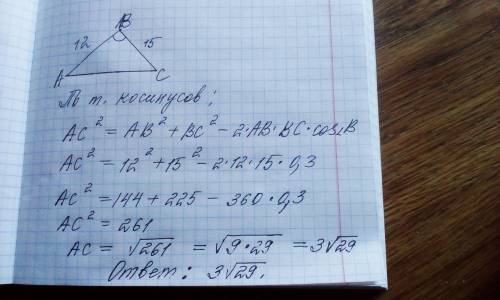 B
12 15
A C
По т. косинусов;
AC² = AB² + BC² - 2·AB·BC·cos∠B
AC² = 12² + 15² - 2·12·15·0,3
AC² = 144 + 225 - 360·0,3
AC² = 261
AC = √261 = √9·29 = 3√29
Ответ: 3√29.